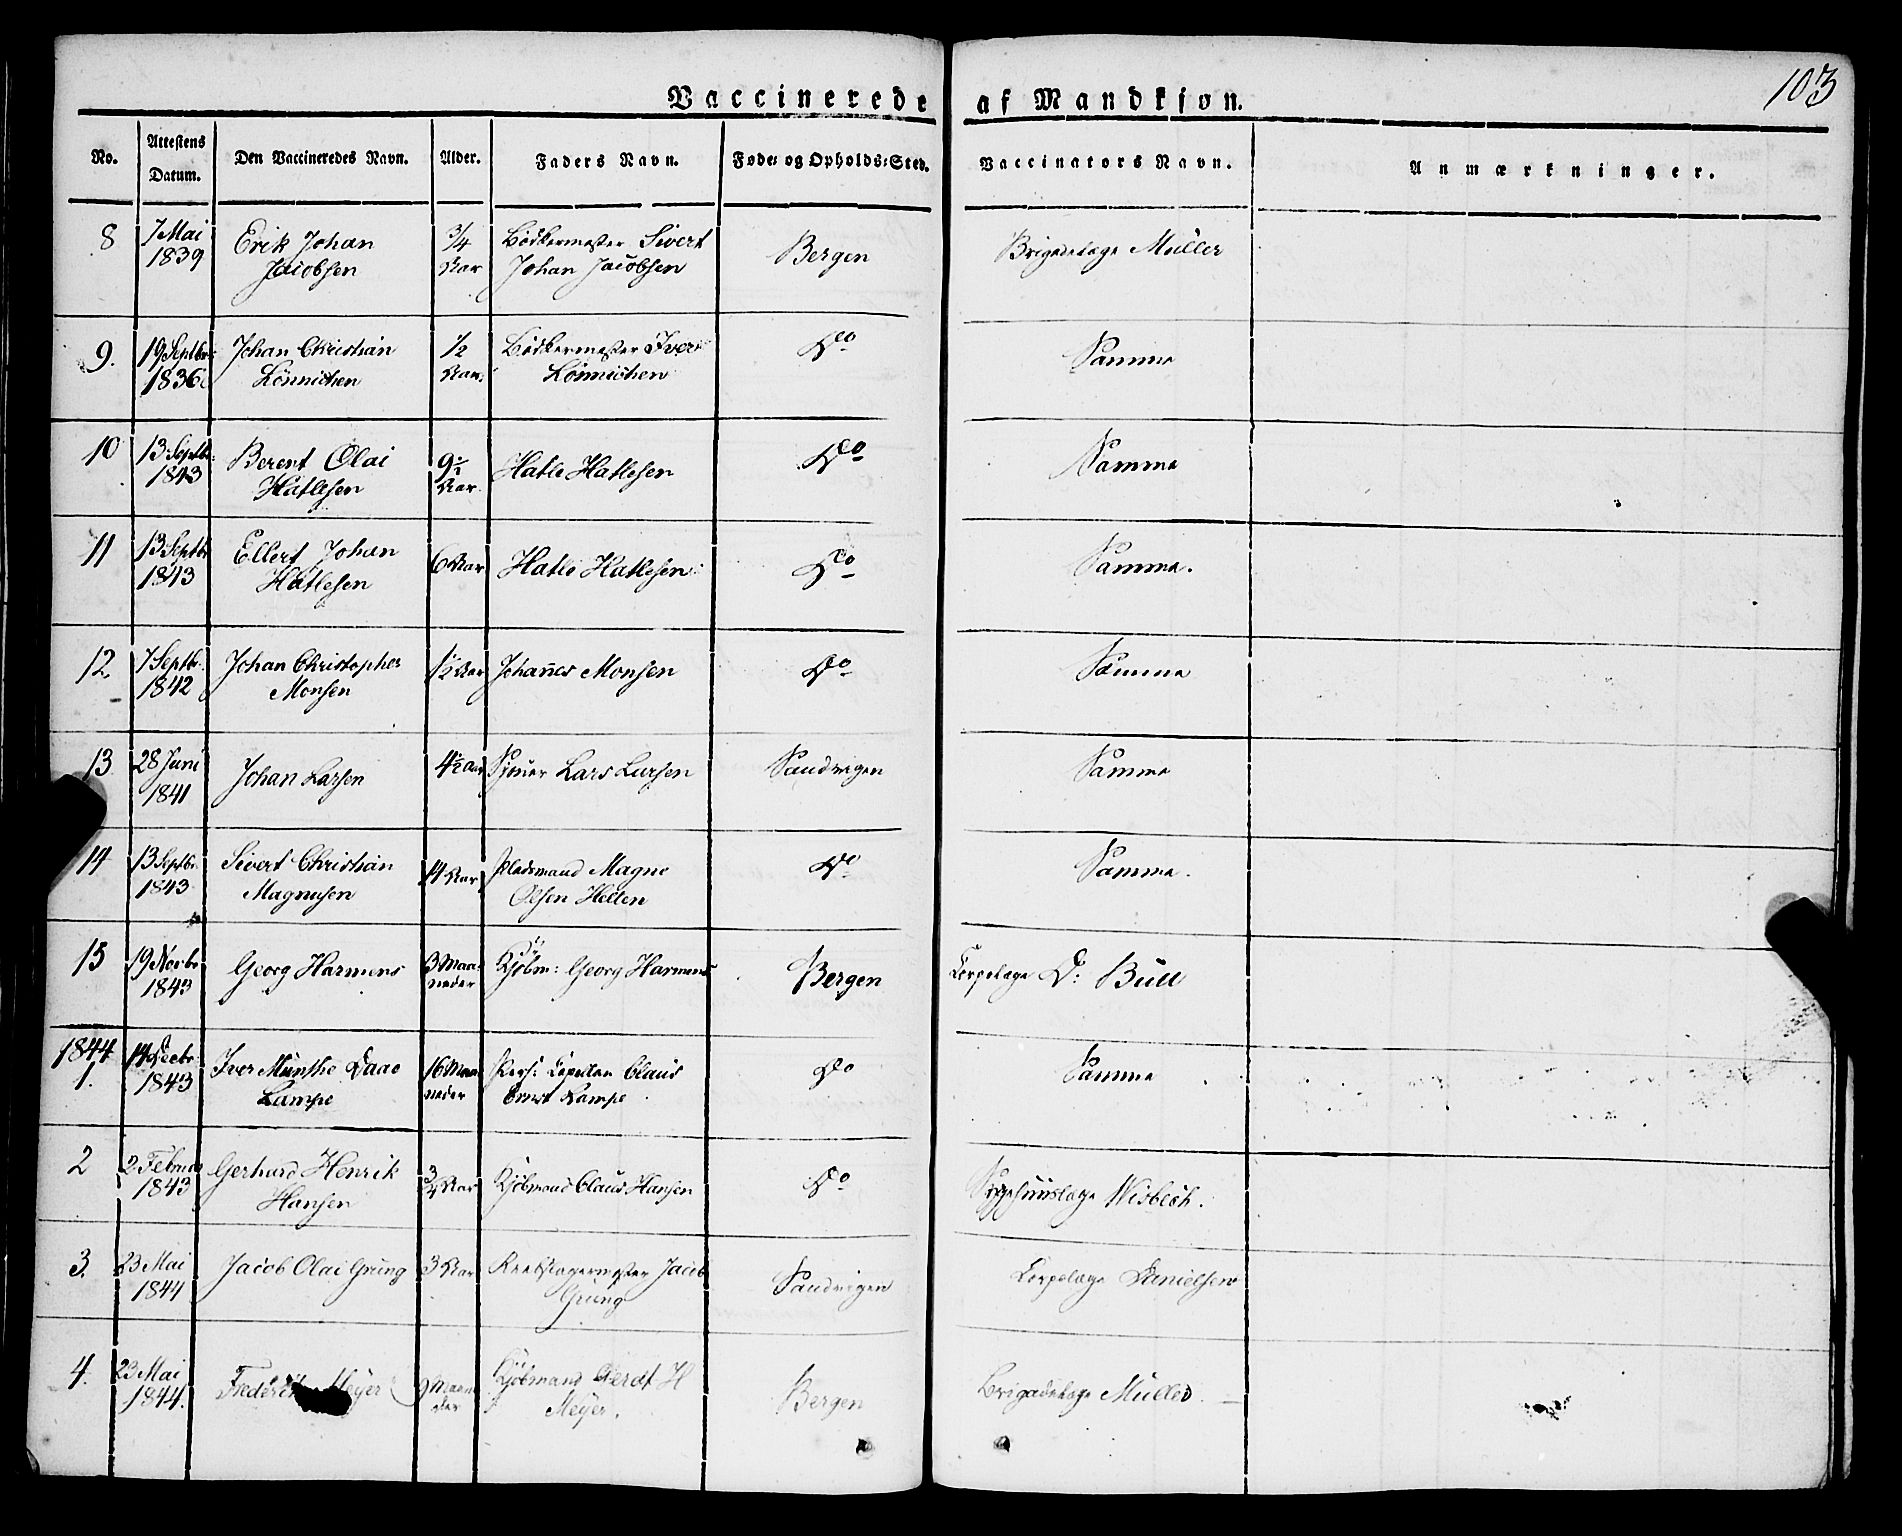 103
Vaccinerede af Mandkjøn.
No. Attestens Datum. Den Vaccineredes Navn. Alder. Faders Navn. Føde- og Opholds-Sted. Vaccinators Navn. Anmærkninger.
8 7 Mai Erik Johan 3/4 Bødkermester Sivert Bergen Brigadelæge Müller
1839 Jacobsen Aar Johan Jacobsen
9. 19 Septbr: Johan Christian 1/2 Bødkermester Iver Do Samme
1836 Lönnichen Aar. Lönnichen
10 13 Septbr: Berent Olai 9½ Hatle Hatlesen Do Samme
1843 Hatlesen Aar.
11 13 Septbr Ellert Johan 6 Aar Hatle Hatlesen Do Samme.
1843 Hatlesen
12. 7 Septbr: Johan Christopher 1½ Aar Johanes Monsen Do Samme
1842 Monsen
13 28 Juni Johan Larsen 4½ Aar Lars Larsen Sandvigen Samme
1841
14 13 Septbr. Sivert Christian 14 Aar Pladsmand Magne Do Samme.
1843 Magnusen Olsen Helten
15 19 Novbr Georg Harmens 3 Maa- Kjøbm: Georg Harmens Bergen Corpslæge D: Bull
1843 neder
1844
1. 14 Decbr: Iver Munthe Daae 16 Maa- Pers: Capellan Claus Do Samme
1843 Lampe neder Ernst Lampe
2 2 Februar Gerhard Henrik Aar Kjøbmand Claus Hansen Do Sygehuuslæge Wisbech.
1843 Hansen
3. 23 Mai Jacob Olai Grüng 3 Aar Reebslagermester Jacob Sandvigen Corpslæge Danielsen
1844 Grüng
4. 23 Mai Meyer 9 Maane- Kjøbmand Gerdt H Bergen Brigadelæge Müller. —
1844. der Meyer.